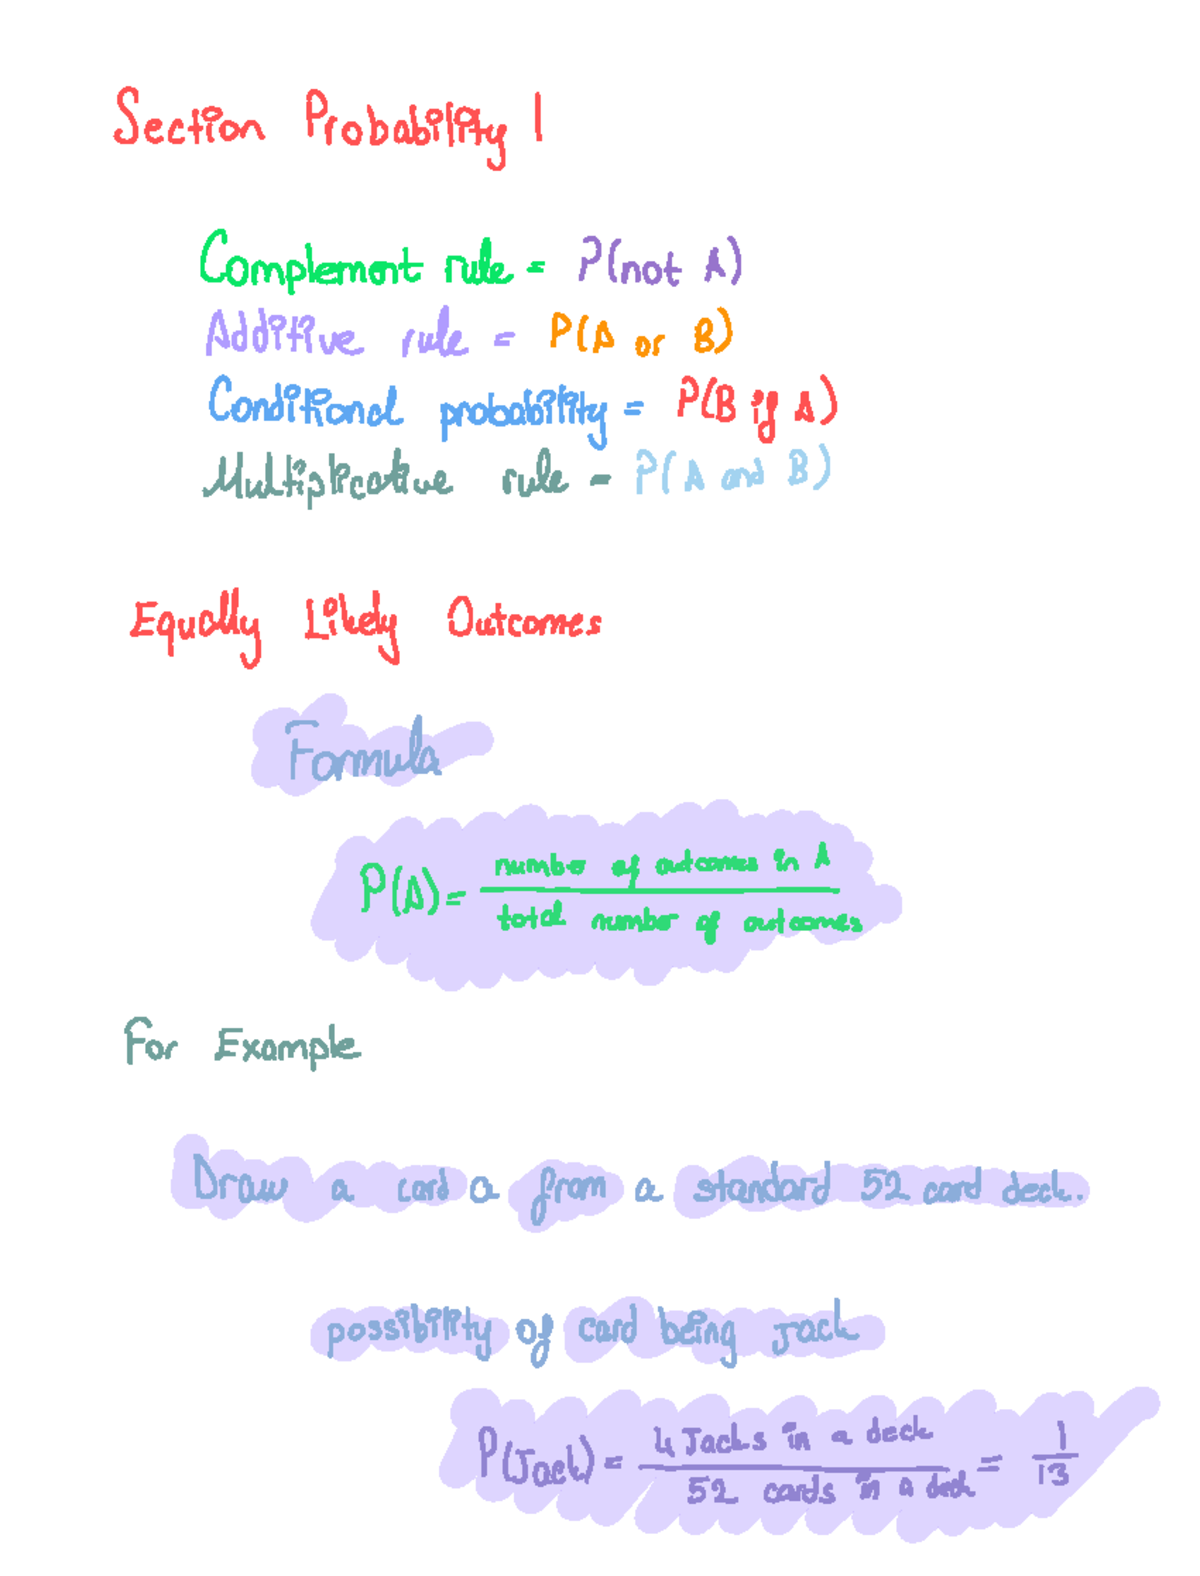 Section Probability 1
Complement rule = P(not A)
Additive rule = P(A or B)
Conditional probability = P(B if A)
Multiplicative rule = P(A and B)
Equally Likely Outcomes
Formula
P(A) = number of outcomes in A / total number of outcomes
For Example
Draw a card a from a standard 52 card deck.
possibility of card being Jack
P(Jack) = 4 Jacks in a deck / 52 cards in a deck = 1/13